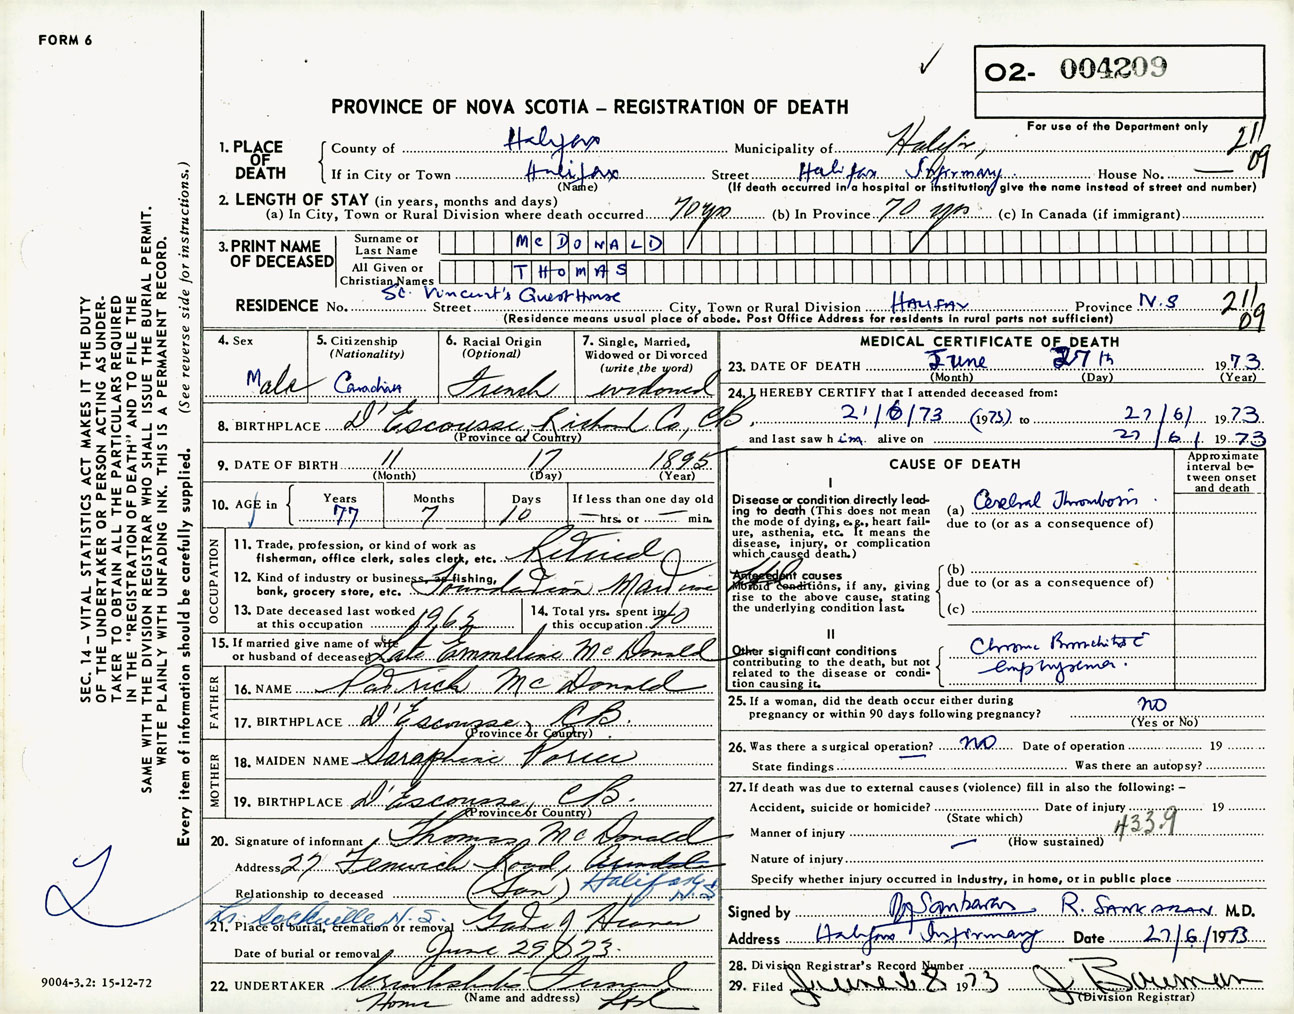 FORM 6
O2- 004209
PROVINCE OF NOVA SCOTIA – REGISTRATION OF DEATH
For use of the Department only
211
09
1. PLACE OF DEATH
County of Halifax Municipality of Halifx,
If in City or Town Halifax Street Halifax Infirmary House No. —
(Name) (If death occurred in a hospital or institution give the name instead of street and number)
2. LENGTH OF STAY (in years, months and days)
(a) In City, Town or Rural Division where death occurred 70 yrs (b) In Province 70 yrs (c) In Canada (if immigrant)
3. PRINT NAME OF DECEASED
Surname or Last Name McDONALD
All Given or Christian Names THOMAS
RESIDENCE No. St. Vincent's Guest House Street City, Town or Rural Division HALIFAX Province N.S
(Residence means usual place of abode. Post Office Address for residents in rural parts not sufficient)
211
09
4. Sex
Male
5. Citizenship
(Nationality)
Canadian
6. Racial Origin
(Optional)
French
7. Single, Married,
Widowed or Divorced
(write the word)
widowed
8. BIRTHPLACE D'Escousse, Richmond Co, CB
(Province or Country)
9. DATE OF BIRTH 11 17 1895
(Month) (Day) (Year)
10. AGE in
Years Months Days If less than one day old
77 7 10 — hrs. or — min.
OCCUPATION
11. Trade, profession, or kind of work as
fisherman, office clerk, sales clerk, etc. Retired
12. Kind of industry or business, as fishing,
bank, grocery store, etc. Foundation Maritime
13. Date deceased last worked
at this occupation 1963
14. Total yrs. spent in
this occupation 40
15. If married give name of wife
or husband of deceased Late Emmeline McDonald
FATHER
16. NAME Patrick McDonald
17. BIRTHPLACE D'Escousse, C.B.
(Province or Country)
MOTHER
18. MAIDEN NAME Saraphine
19. BIRTHPLACE D'Escousse, CB.
(Province or Country)
20. Signature of informant Thomas McDonald
Address 27 Fenwick Road,
Halifax N.S.
Relationship to deceased (Son)
Lr. Sackville N.S.
21. Place of burial, cremation or removal Gate of Heaven
Date of burial or removal June 29/73.
22. UNDERTAKER Cruikshanks Funeral
Home Ltd
(Name and address)
MEDICAL CERTIFICATE OF DEATH
23. DATE OF DEATH June 27th 1973
(Month) (Day) (Year)
24. I HEREBY CERTIFY that I attended deceased from:
21/6/73 (1973) to 27/6/ 1973
and last saw him alive on 27/6/ 1973
CAUSE OF DEATH
Approximate interval between onset and death
I
Disease or condition directly leading to death (This does not mean the mode of dying, e.g., heart failure, asthenia, etc. It means the disease, injury, or complication which caused death.)
(a) Cerebral Thrombosis.
due to (or as a consequence of)
Antecedent causes
Morbid conditions, if any, giving rise to the above cause, stating the underlying condition last.
(b)
due to (or as a consequence of)
(c)
II
Other significant conditions
contributing to the death, but not related to the disease or condition causing it.
Chronic Bronchitis &
emphysema.
25. If a woman, did the death occur either during
pregnancy or within 90 days following pregnancy? NO
(Yes or No)
26. Was there a surgical operation? NO Date of operation 19
State findings Was there an autopsy?
27. If death was due to external causes (violence) fill in also the following: –
Accident, suicide or homicide? Date of injury 19
(State which)
433.9
Manner of injury
(How sustained)
Nature of injury
Specify whether injury occurred in industry, in home, or in public place
Signed by R Sankaran R. SANKARAN M.D.
Address Halifax Infirmary Date 27/6/1973
28. Division Registrar's Record Number
29. Filed June 28 1973 J Bowman
(Division Registrar)
SEC. 14 – VITAL STATISTICS ACT MAKES IT THE DUTY
OF THE UNDERTAKER OR PERSON ACTING AS UNDER-
TAKER TO OBTAIN ALL THE PARTICULARS REQUIRED
IN THE "REGISTRATION OF DEATH" AND TO FILE THE
SAME WITH THE DIVISION REGISTRAR WHO SHALL ISSUE THE BURIAL PERMIT.
WRITE PLAINLY WITH UNFADING INK. THIS IS A PERMANENT RECORD.
Every item of information should be carefully supplied. (See reverse side for instructions.)
9004-3.2: 15-12-72